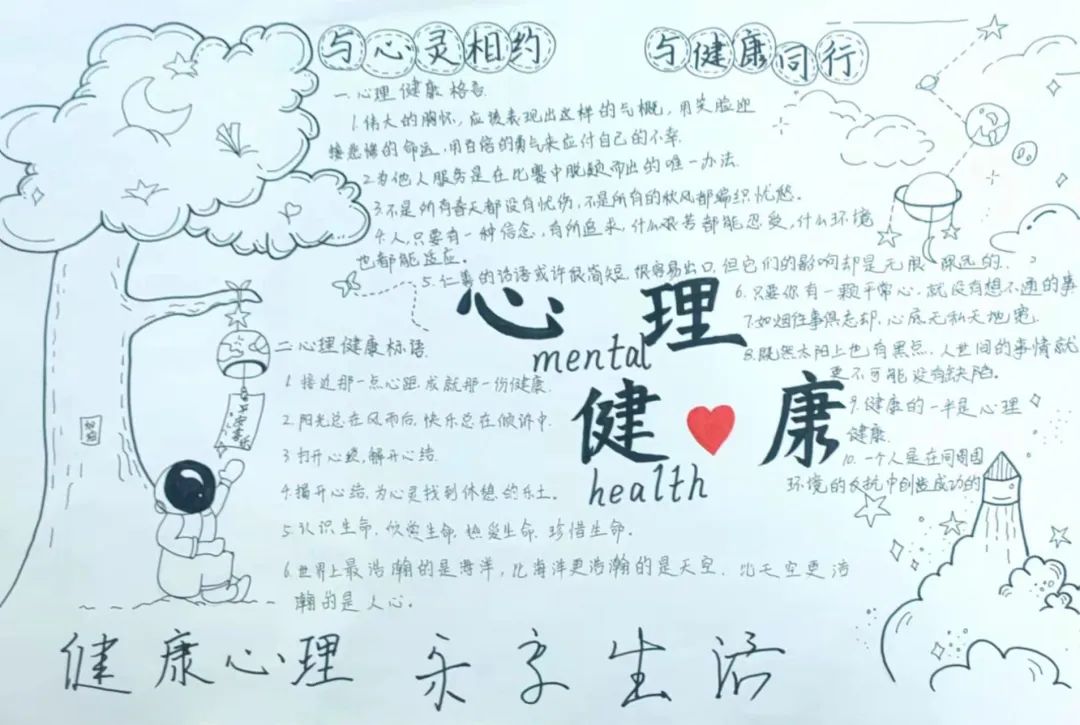 与心灵相约 与健康同行
一.心理健康格言
1.伟大的胸怀,应该表现出这样的气概,用笑脸迎
接悲惨的命运,用百倍的勇气来应付自己的不幸.
2.为他人服务是在比赛中脱颖而出的唯一办法.
3.不是所有春天都没有忧伤,不是所有的秋风都编织忧愁。
4.人,只要有一种信念,有所追求,什么艰苦都能忍受,什么环境
也都能适应。
5.仁善的话语或许很简短.很容易出口,但它们的影响却是无限 限远的
6.只要你有一颗平常心.就没有想不通的事
7.如烟往事俱忘却,心底无私天地宽.
8.既然太阳上也有黑点.人世间的事情就
更不可能没有缺陷。
9.健康的一半是心理
健康.
10.一个人是在同周围
环境的反抗中创造成功的
心理
mental
健康
health
二.心理健康标语.
1.接近那一点心距.成就那一份健康.
2.阳光总在风雨后,快乐总在倾诉中.
3.打开心锁,解开心结.
4.揭开心结.为心灵找到休憩的乐土。
5.认识生命.欣赏生命.热爱生命.珍惜生命.
6.世界上最浩瀚的是海洋,比海洋更浩瀚的是天空.比天空更浩
瀚的是人心。
平安喜乐
健康心理 乐享生活